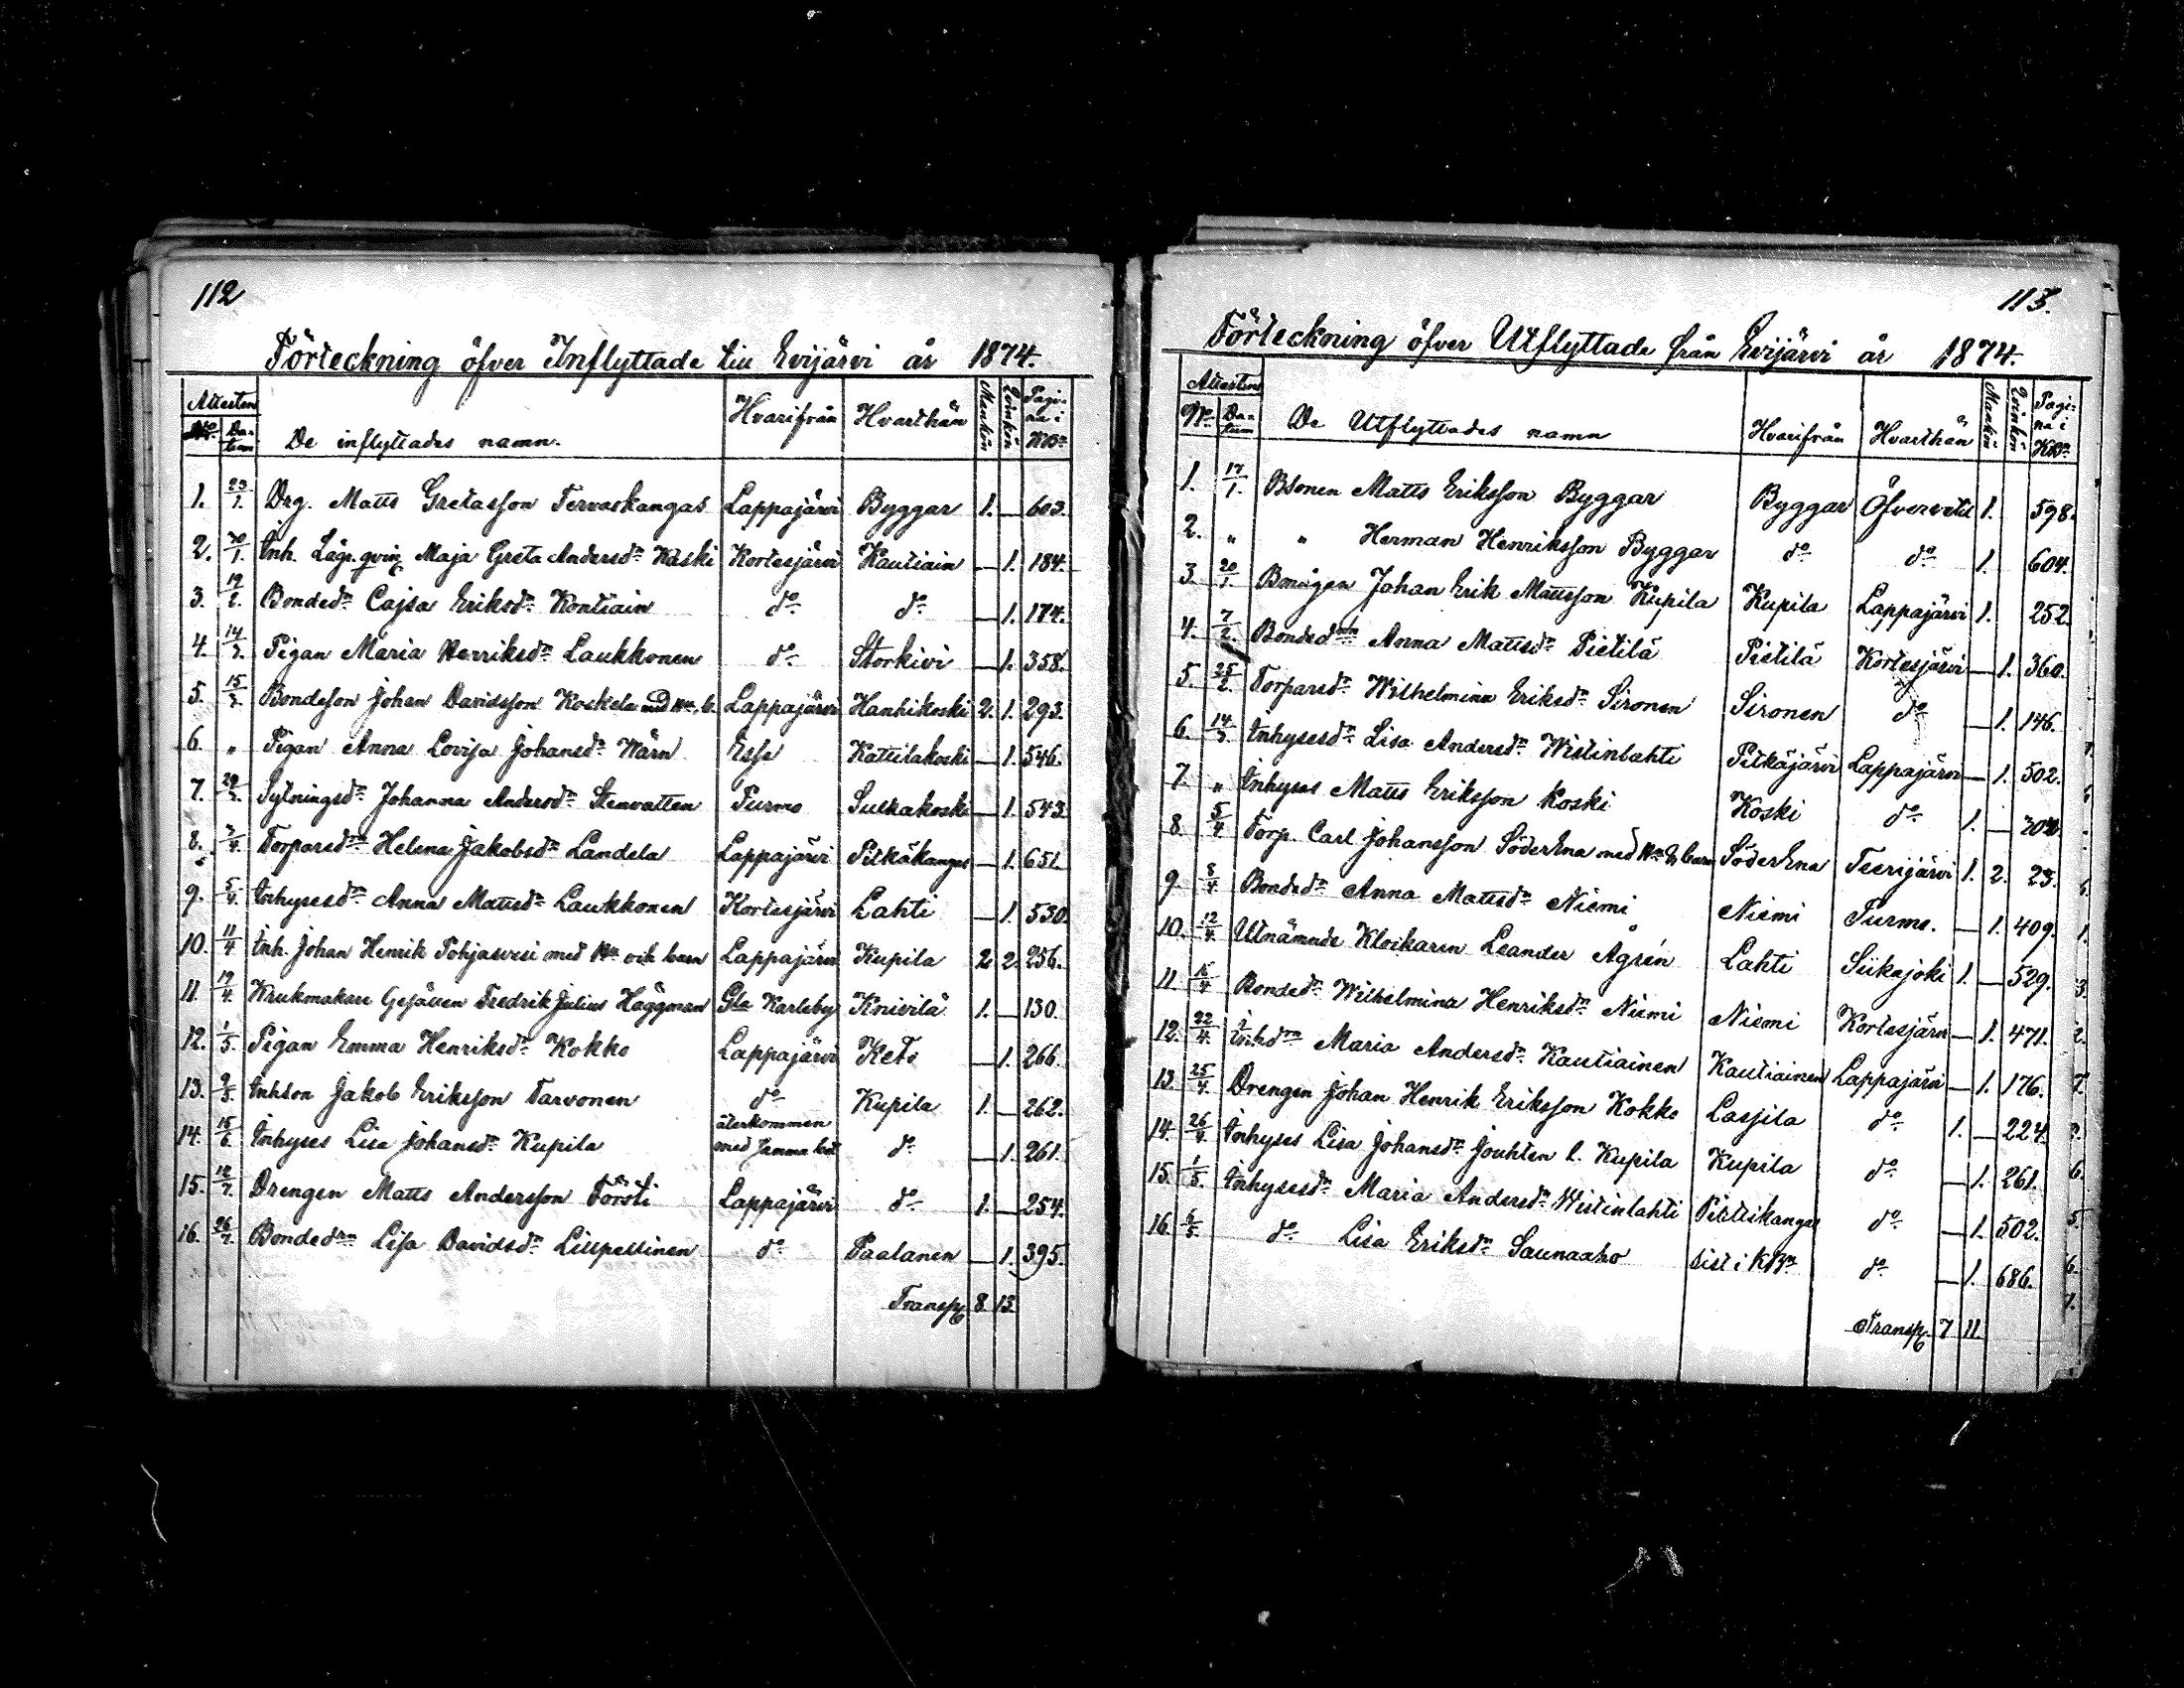 112
Förteckning öfver Inflyttade till Evijärvi år 1874.
Attestens
No. Datum De inflyttades namn. Hvarifrån Hvarthän Mankön Qvinkön Pagina i KBn
1. 23/1. Drg. Matts Gretasson Tervaskangas Lappajärvi Byggar 1. — 603.
2. 30/1. Inh. Lägr. qvin. Maja Greta Andersdr Kaski Kortesjärvi Kautiain — 1. 184.
3. 19/2. Bondedr Cajsa Eriksdr Kontiain do do — 1. 174.
4. 14/3. Pigan Maria Henriksdr Laukkonen do Storkivi — 1. 358.
5. 15/3. Bondeson Johan Davidsson Koskela med Hu. b. Lappajärvi Hanhikoski 2. 1. 293.
6. „ Pigan Anna Lovisa Johansdr Wärn Esse Kattilakoski — 1. 546.
7. 29/3. Sytningsdr Johanna Andersdr Stenvatten Purmo Sulkakoski — 1. 543.
8. 3/4. Torparedrn Helena Jakobsdr Landela Lappajärvi Pitkäkangas — 1. 651.
9. 5/4. Inhysesdr Anna Mattsdr Laukkonen Kortesjärvi Lahti — 1. 530.
10. 11/4 Inh. Johan Henrik Pohjasvesi med Hu och barn Lappajärvi Kupila 2 2. 256.
11. 19/4. Krukmakare Gesällen Fredrik Julius Häggman Gla Karleby Knivilä 1. — 130.
12. 1/5. Pigan Emma Henriksdr Kokko Lappajärvi Keto — 1. 266.
13. 9/5. Inhson Jakob Eriksson Tarvonen do Kupila 1. — 262.
14. 15/6. Inhyses Lisa Johansdr Kupila återkommen med samma bet. do — 1. 261.
15. 12/7. Drengen Matts Andersson Försti Lappajärvi do 1. — 254.
16. 26/7. Bondedrn Lisa Davidsdr Lillpellinen do Paalanen — 1. 395.
Transp. 8 13.
113.
Förteckning öfver Utflyttade från Evijärvi år 1874.
Attestens
No. Datum De Utflyttades namn Hvarifrån Hvarthän Mankön Qvinkön Pagina i KBn
1. 17/1. Bsonen Matts Eriksson Byggar Byggar Öfvervetil 1. 598.
2. „ „ Herman Henriksson Byggar do do 1. 604.
3. 20/1. Bmågen Johan Erik Mattsson Kupila Kupila Lappajärvi 1. 252.
4. 7/2. Bondedrn Anna Mattsdr Pietilä Pietilä Kortesjärvi — 1. 360.
5. 25/2. Torparedr Wilhelmina Eriksdr Sironen Sironen do — 1. 146.
6. 14/3. Inhysesdr Lisa Andersdr Wistinlahti Pitkäjärvi Lappajärvi — 1. 502.
7. „ Inhyses Matts Eriksson Koski Koski do 1. —
8. 5/4 Torp. Carl Johansson SöderEna med Hu & barn SöderEna Teerijärvi 1. 2. 23.
9. 8/4 Bondedr Anna Mattsdr Niemi Niemi Purmo. — 1. 409.
10. 12/4. Utnämnde Klockaren Leander Ågrén Lahti Siikajoki 1. — 529.
11. 15/4 Bondedr Wilhelmina Henriksdr Niemi Niemi Kortesjärvi — 1. 471.
12. 22/4. Inhdrn Maria Andersdr Kautiainen Kautiainen Lappajärvi — 1. 176.
13. 25/4 Drengen Johan Henrik Eriksson Kokko Lasjila do 1. — 224.
14. 26/4. Inhyses Lisa Johansdr Jouhten l. Kupila Kupila do — 1. 261.
15. 1/5. Inhysesdr Maria Andersdr Wistinlahti Pitkäkangas do — 1. 502.
16. 6/5. do Lisa Eriksdr Saunaaho sist i KBn do — 1. 686.
Transp. 7 11.